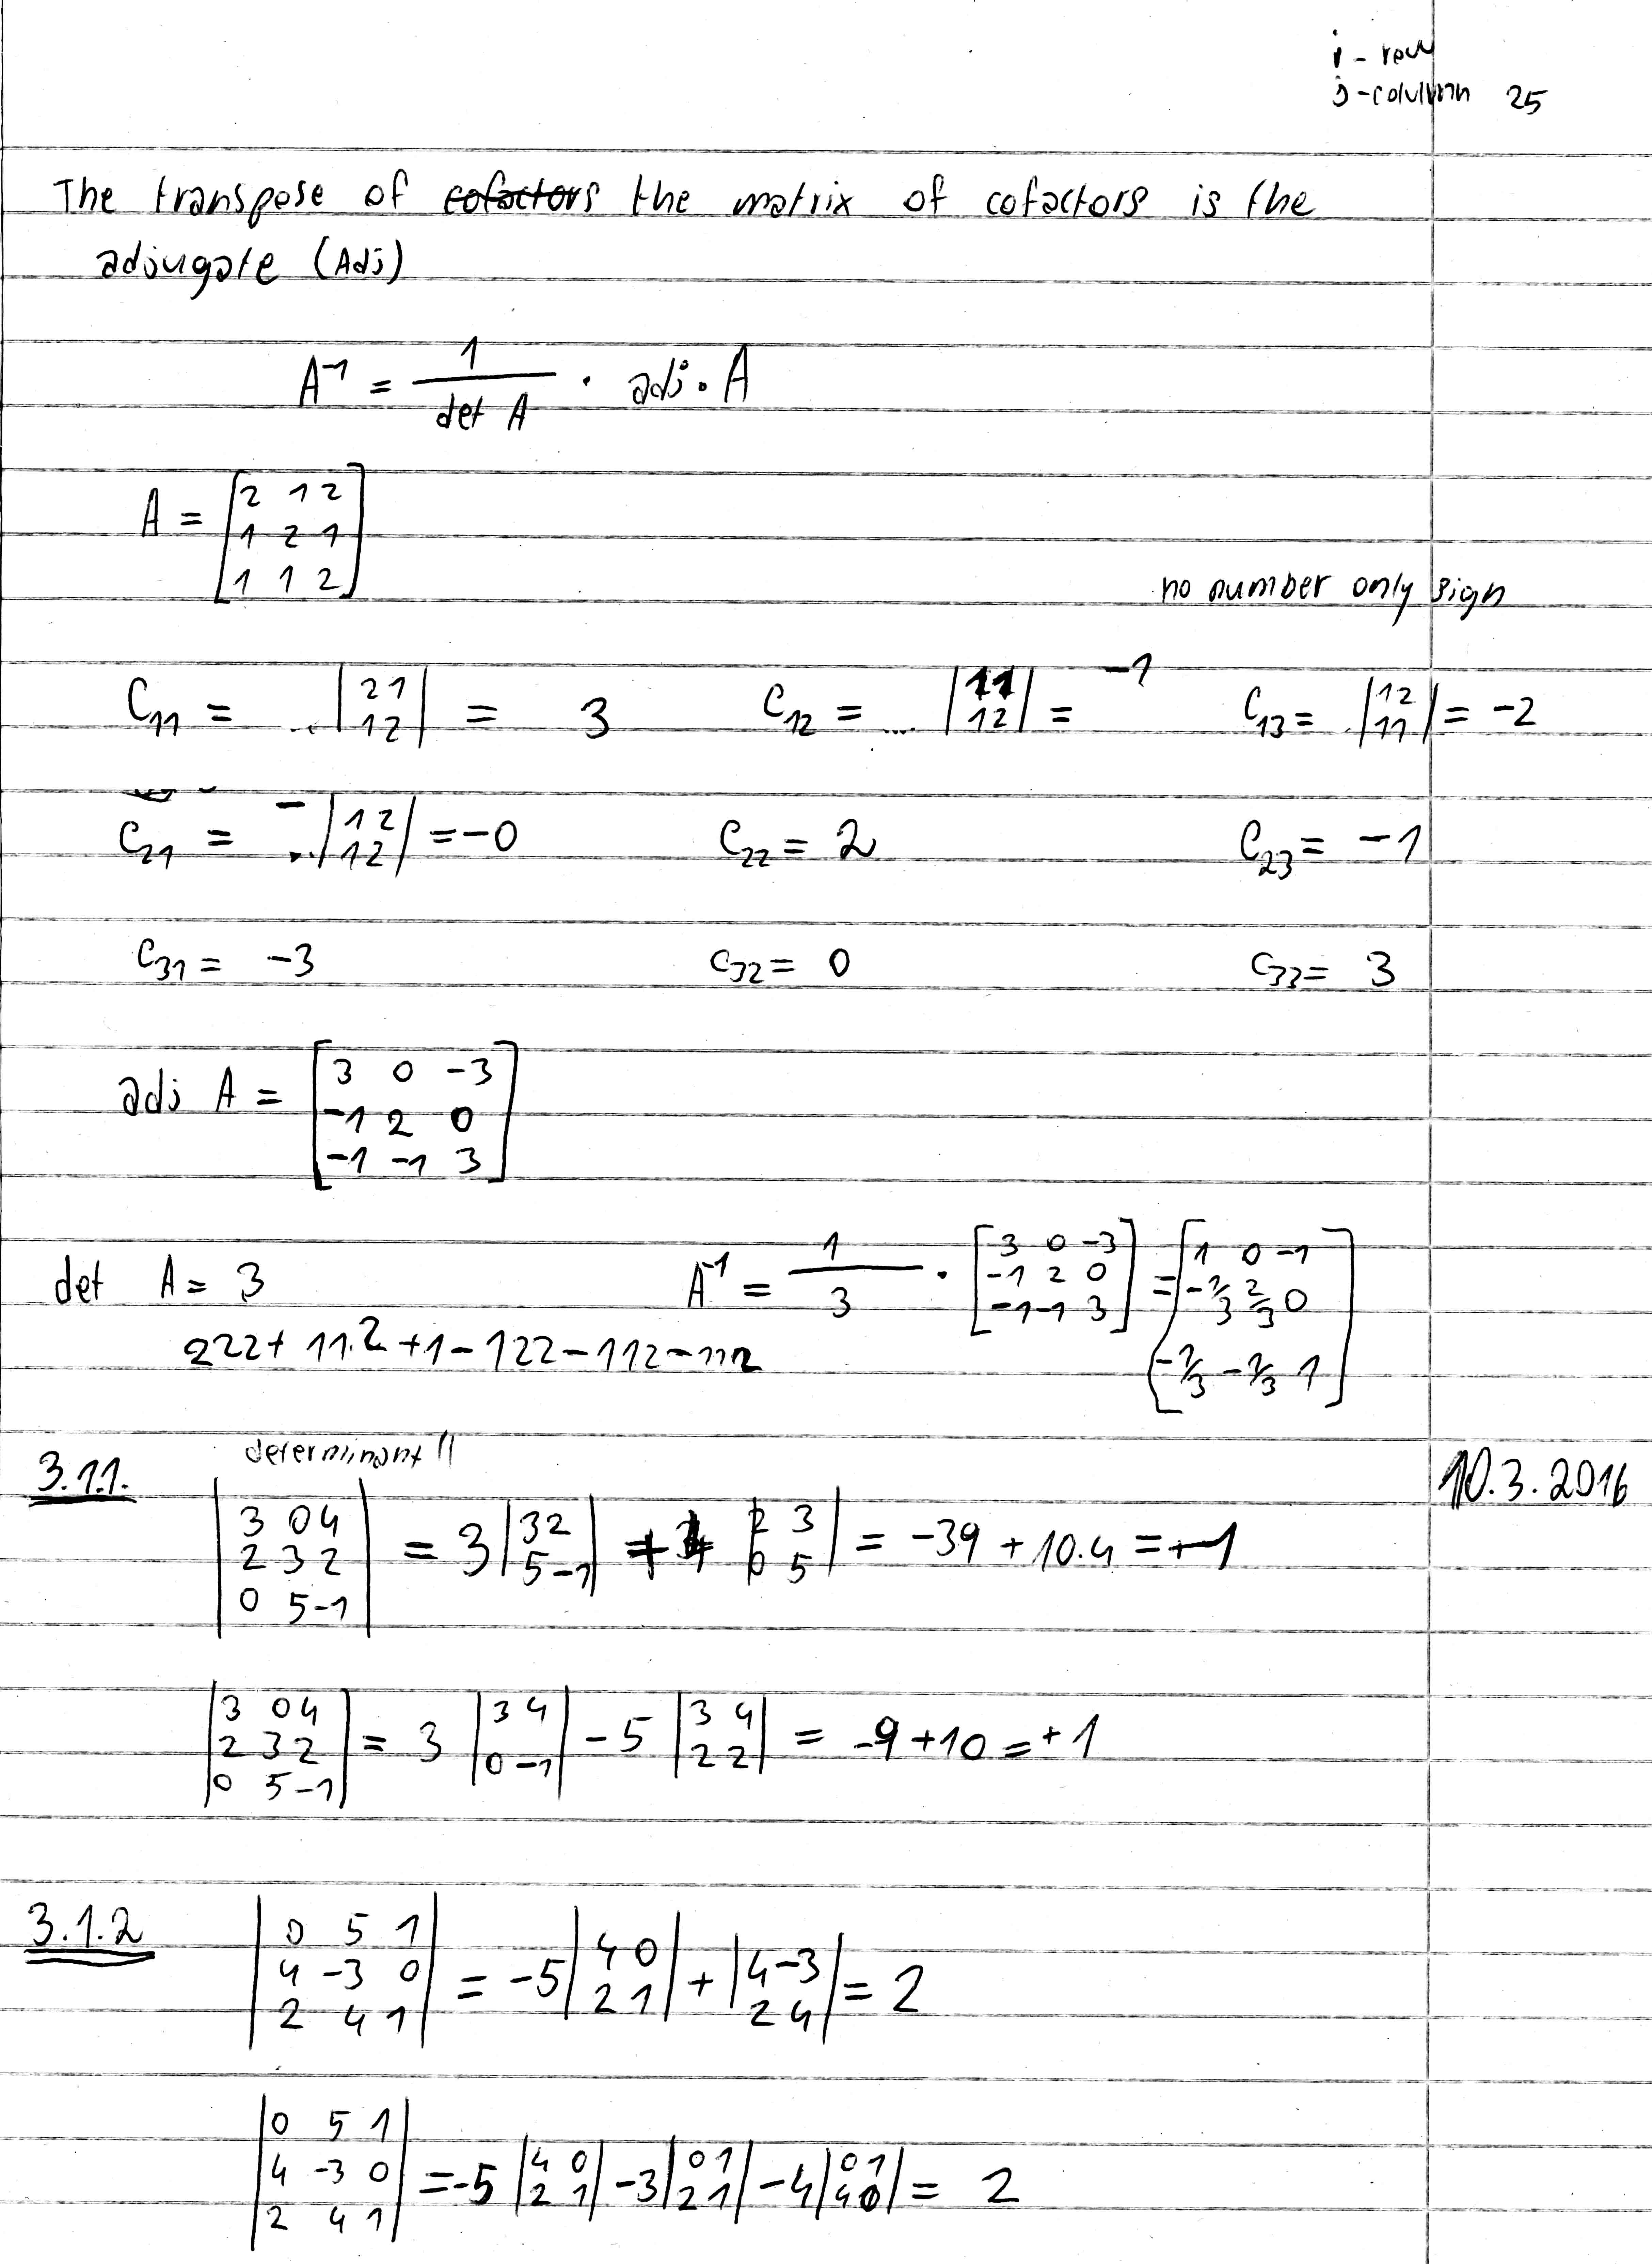 i - row
j - column 25
The transpose of cofactors the matrix of cofactors is the
adjugate (Adj)
A⁻¹ = 1 / det A · adj · A
A = [2 1 2
1 2 1
1 1 2]
no number only sign
C₁₁ = |2 1; 1 2| = 3 C₁₂ = |1 1; 1 2| = -1 C₁₃ = |1 2; 1 1| = -2
C₂₁ = - |1 2; 1 2| = -0 C₂₂ = 2 C₂₃ = -1
C₃₁ = -3 C₃₂ = 0 C₃₃ = 3
adj A = [3 0 -3
-1 2 0
-1 -1 3]
det A = 3 A⁻¹ = 1/3 · [3 0 -3; -1 2 0; -1 -1 3] = [1 0 -1; -1/3 2/3 0; -1/3 -1/3 1]
222 + 11·2 + 1 - 122 - 112 - 112
determinant !!
3.1.1. 10.3.2016
|3 0 4; 2 3 2; 0 5 -1| = 3 |3 2; 5 -1| + 4 |2 3; 0 5| = -39 + 10.4 = +1
|3 0 4; 2 3 2; 0 5 -1| = 3 |3 4; 0 -1| - 5 |3 4; 2 2| = -9 + 10 = +1
3.1.2 |0 5 1; 4 -3 0; 2 4 1| = -5 |4 0; 2 1| + |4 -3; 2 4| = 2
|0 5 1; 4 -3 0; 2 4 1| = -5 |4 0; 2 1| - 3 |0 1; 2 1| - 4 |0 1; 4 0| = 2